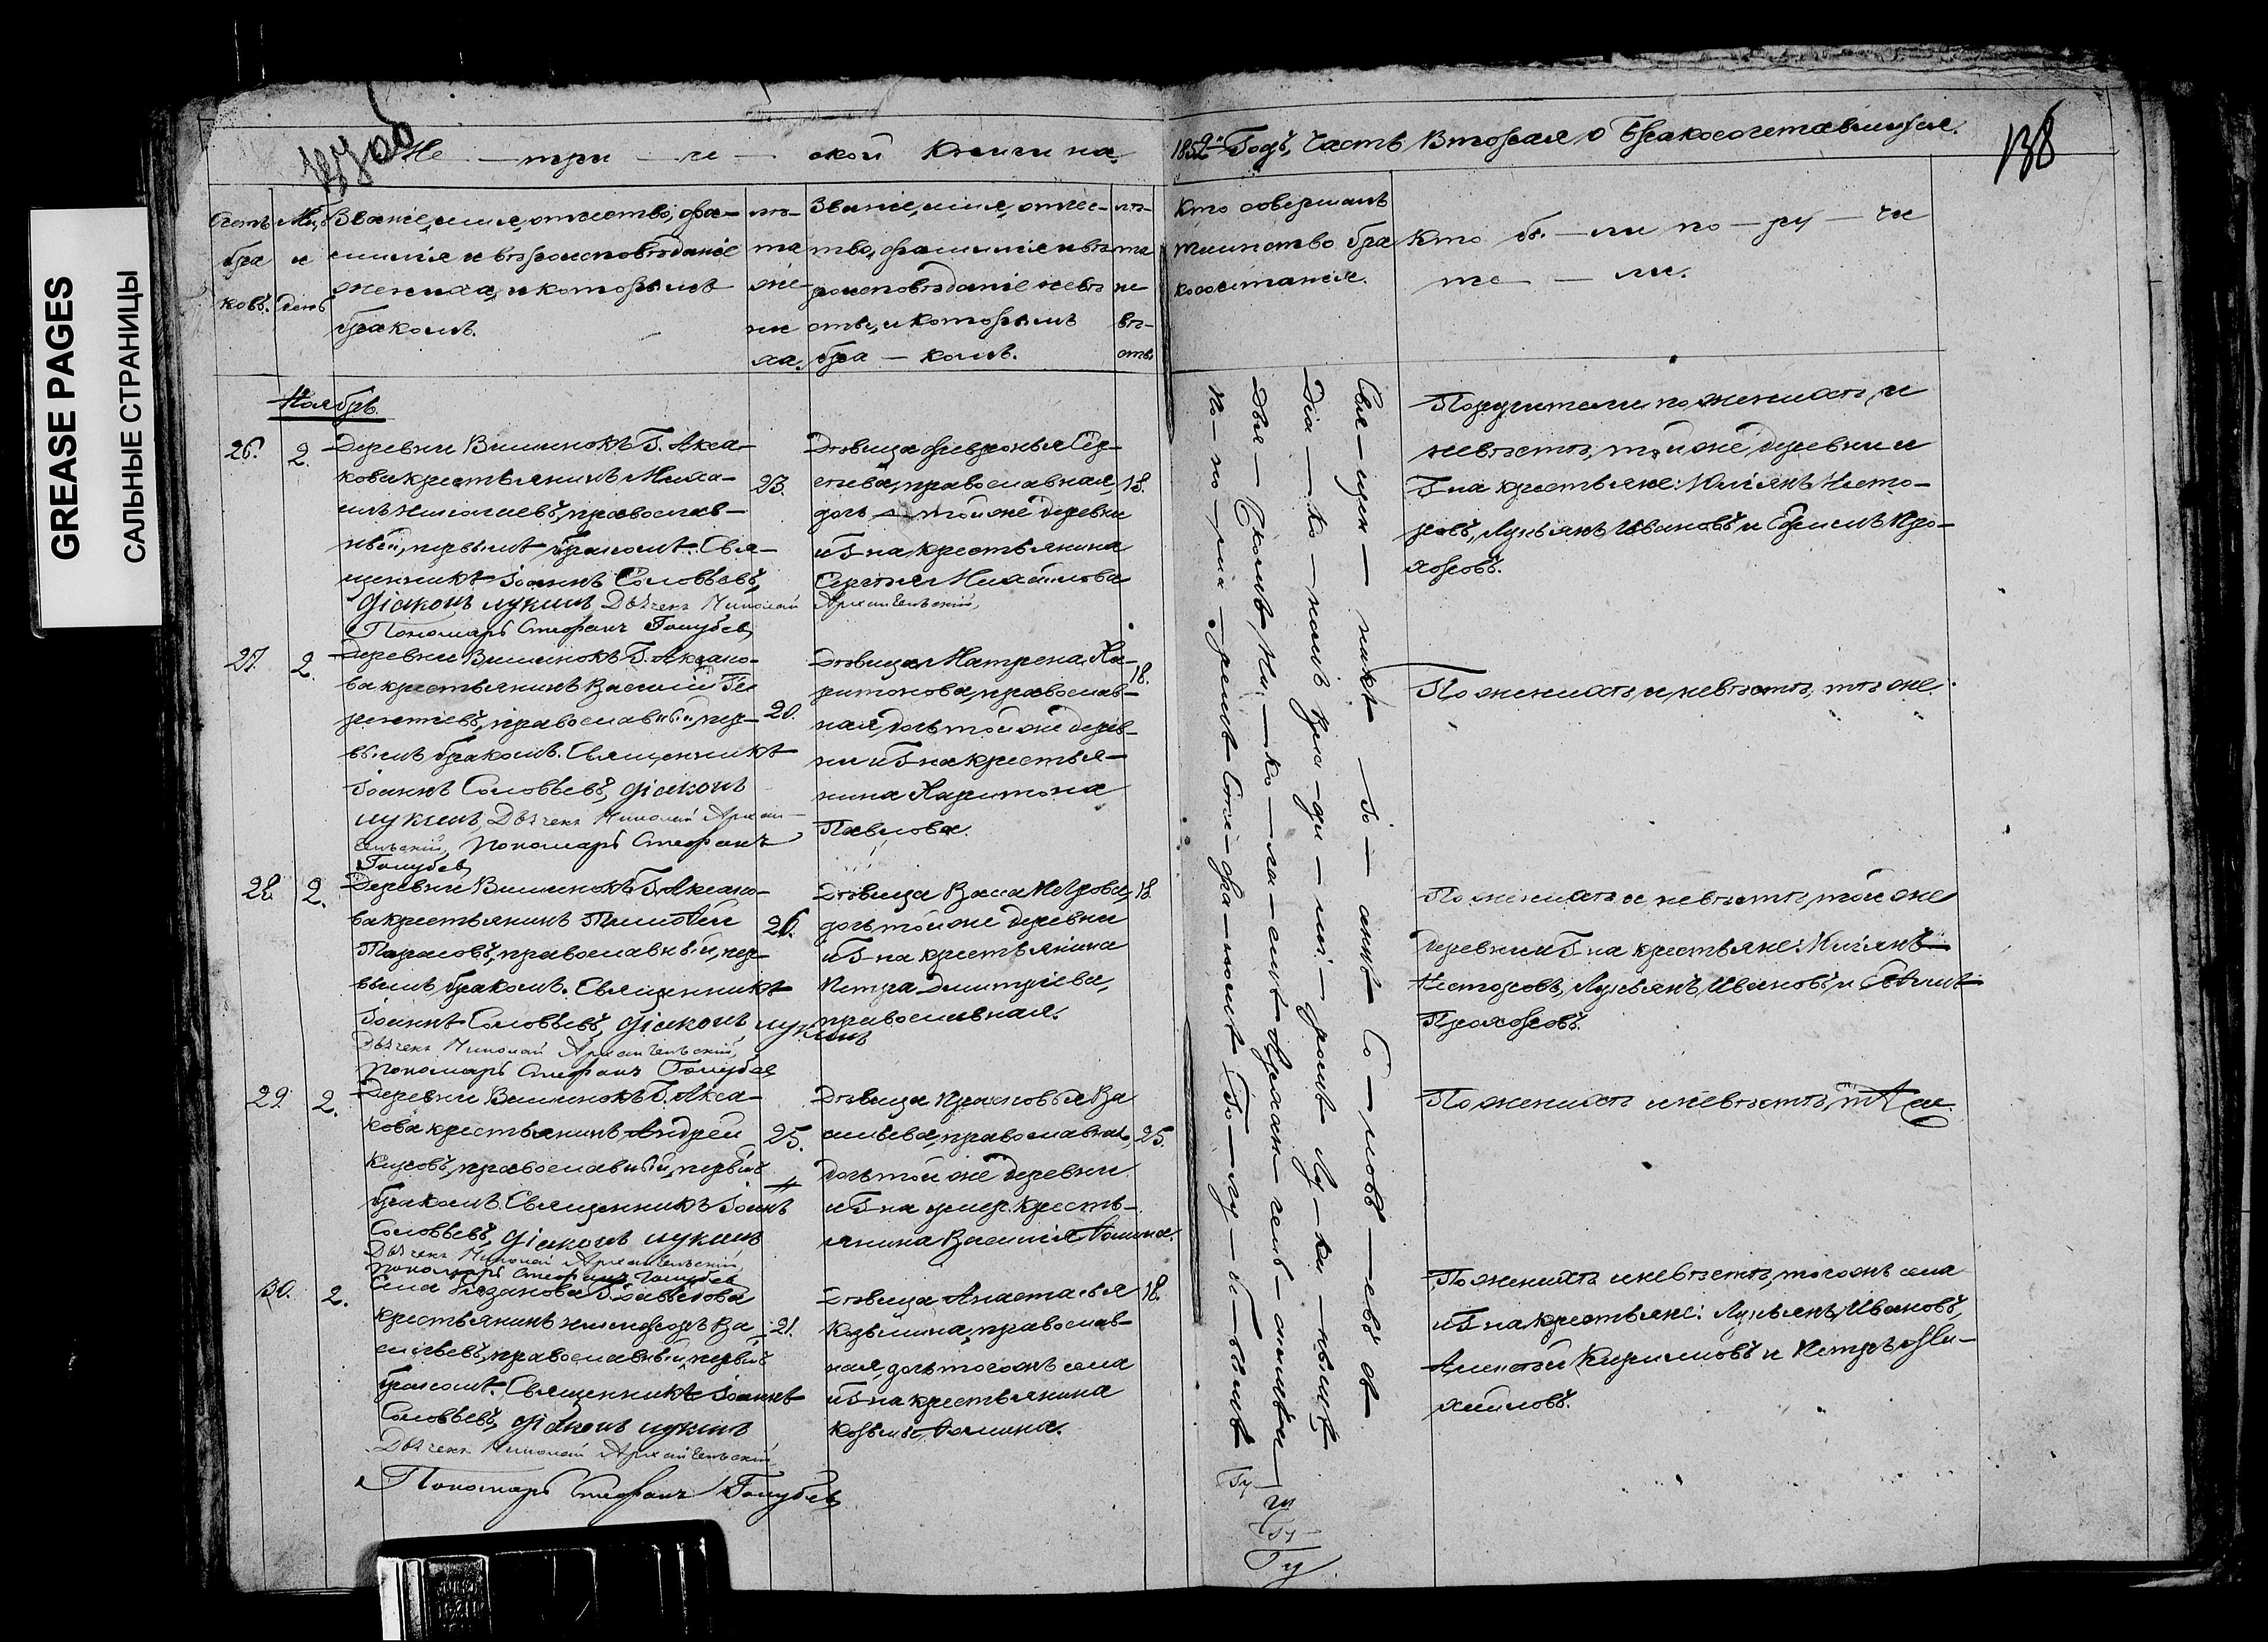 GREASE PAGES
САЛЬНЫЕ СТРАНИЦЫ
138
Ме — три — че — ской книги на
1852й Годъ, Часть Вторая о бракосочетавшихся.
Счетъ
бра
ковъ.
Мѣсяцъ
и
день
Званіе, имя, отчество, фа-
милія и вѣроисповѣданіе
жениха, и которымъ
бракомъ.
лѣ-
та
же-
ни
ха.
Званіе, имя, отчес-
тво, фамилія и вѣ
роисповѣданіе невѣ
сты, и которымъ
бра — комъ.
лѣ-
та
не
вѣ-
сты.
Кто совершалъ
таинство бра
косочетанія.
Кто бы — ли по — ру — чи
те — ли.
Ноябрь.
26. 2.
Деревни Вишнокъ Г. Акса-
кова крестьянинъ Миха-
илъ Николаевъ, православ-
ный, первымъ бракомъ. Свя-
щенникъ Іоаннъ Соловьевъ,
Діаконъ Лукинъ Дьячекъ Николай Архангельскій,
Пономарь Стефанъ Голубев
23.
Дѣвица Февронья Сер-
геева, православная,
дочь той же деревни
и Г-на крестьянина
Сергѣя Михайлова
18.
Поручители по женихѣ, и
невѣстѣ, той же деревни и
Г-на крестьяне: Килиянъ Несто-
ровъ, Лукьянъ Ивановъ и Ефимъ Про-
хоровъ.
27. 2.
Деревни Вишнокъ Г. Аксако-
ва крестьянинъ Василій Те
рентіевъ, православный, пер-
вымъ бракомъ. Священникъ
Іоаннъ Соловьевъ, Діаконъ
Лукинъ, Дьячекъ Николай Архан-
гельскій, Пономарь Стефанъ
Голубев
20.
Дѣвица Матрена Ха-
ритонова, православ-
ная, дочь той же дерев-
ни и Г-на крестья-
нина Харитона
Павлова.
18.
По женихѣ, и невѣстѣ, тѣ же.
28. 2.
Деревни Вишнокъ Г. Аксако-
ва крестьянинъ Тимофей
Тарасовъ, православный, пер-
вымъ бракомъ. Священникъ
Іоаннъ Соловьевъ, Діаконъ Лукинъ
Дьячекъ Николай Архангельскій,
Пономарь Стефанъ Голубев
26.
Дѣвица Васса Петрова,
дочь той же деревни
и Г-на крестьянина
Петра Димитріева,
православная.
18.
По женихѣ и невѣстѣ, той же
деревни и Г-на крестьяне: Килиянъ
Несторовъ, Лукьянъ Ивановъ, и Ефимъ
Прохоровъ.
29. 2.
Деревни Вишнокъ Г. Акса-
кова крестьянинъ Андрей
Кировъ, православный, первымъ
бракомъ. Священникъ Іоаннъ
Соловьевъ, Діаконъ Лукинъ
Дьячекъ Николай Архангельскій,
Пономарь Стефанъ Голубев
25.
Дѣвица Прасковья Ва
сильева, православная,
дочь той же деревни
и Г-на умер. кресть-
янина Василія Фомина.
25.
По женихѣ и невѣстѣ, тѣ же.
30. 2.
Села Рязанова Г. Давыдова
крестьянинъ Никифоръ Ва
сильевъ, православный, первымъ
бракомъ. Священникъ Іоаннъ
Соловьевъ, Діаконъ Лукинъ
Дьячекъ Николай Архангельскій
Пономарь Стефанъ Голубев
21.
Дѣвица Анастасья
Козьмина, православ-
ная, дочь того жъ села
и Г-на крестьянина
Козьмы Фомина.
18.
По женихѣ и невѣстѣ, того жъ села
и Г-на крестьяне: Лукьянъ Ивановъ,
Алексѣй Кириловъ и Петръ Ми-
хайловъ.
Свя — щен — никъ Іо — аннъ Со — ловь — евъ съ
Діа — ко — номъ Лу — ки — нымъ
Дья — чкомъ Ни — ко — ла — емъ Архан — гель — скимъ и
По — но — ма — ремъ Сте — фа — номъ Го — лу — бе — вымъ